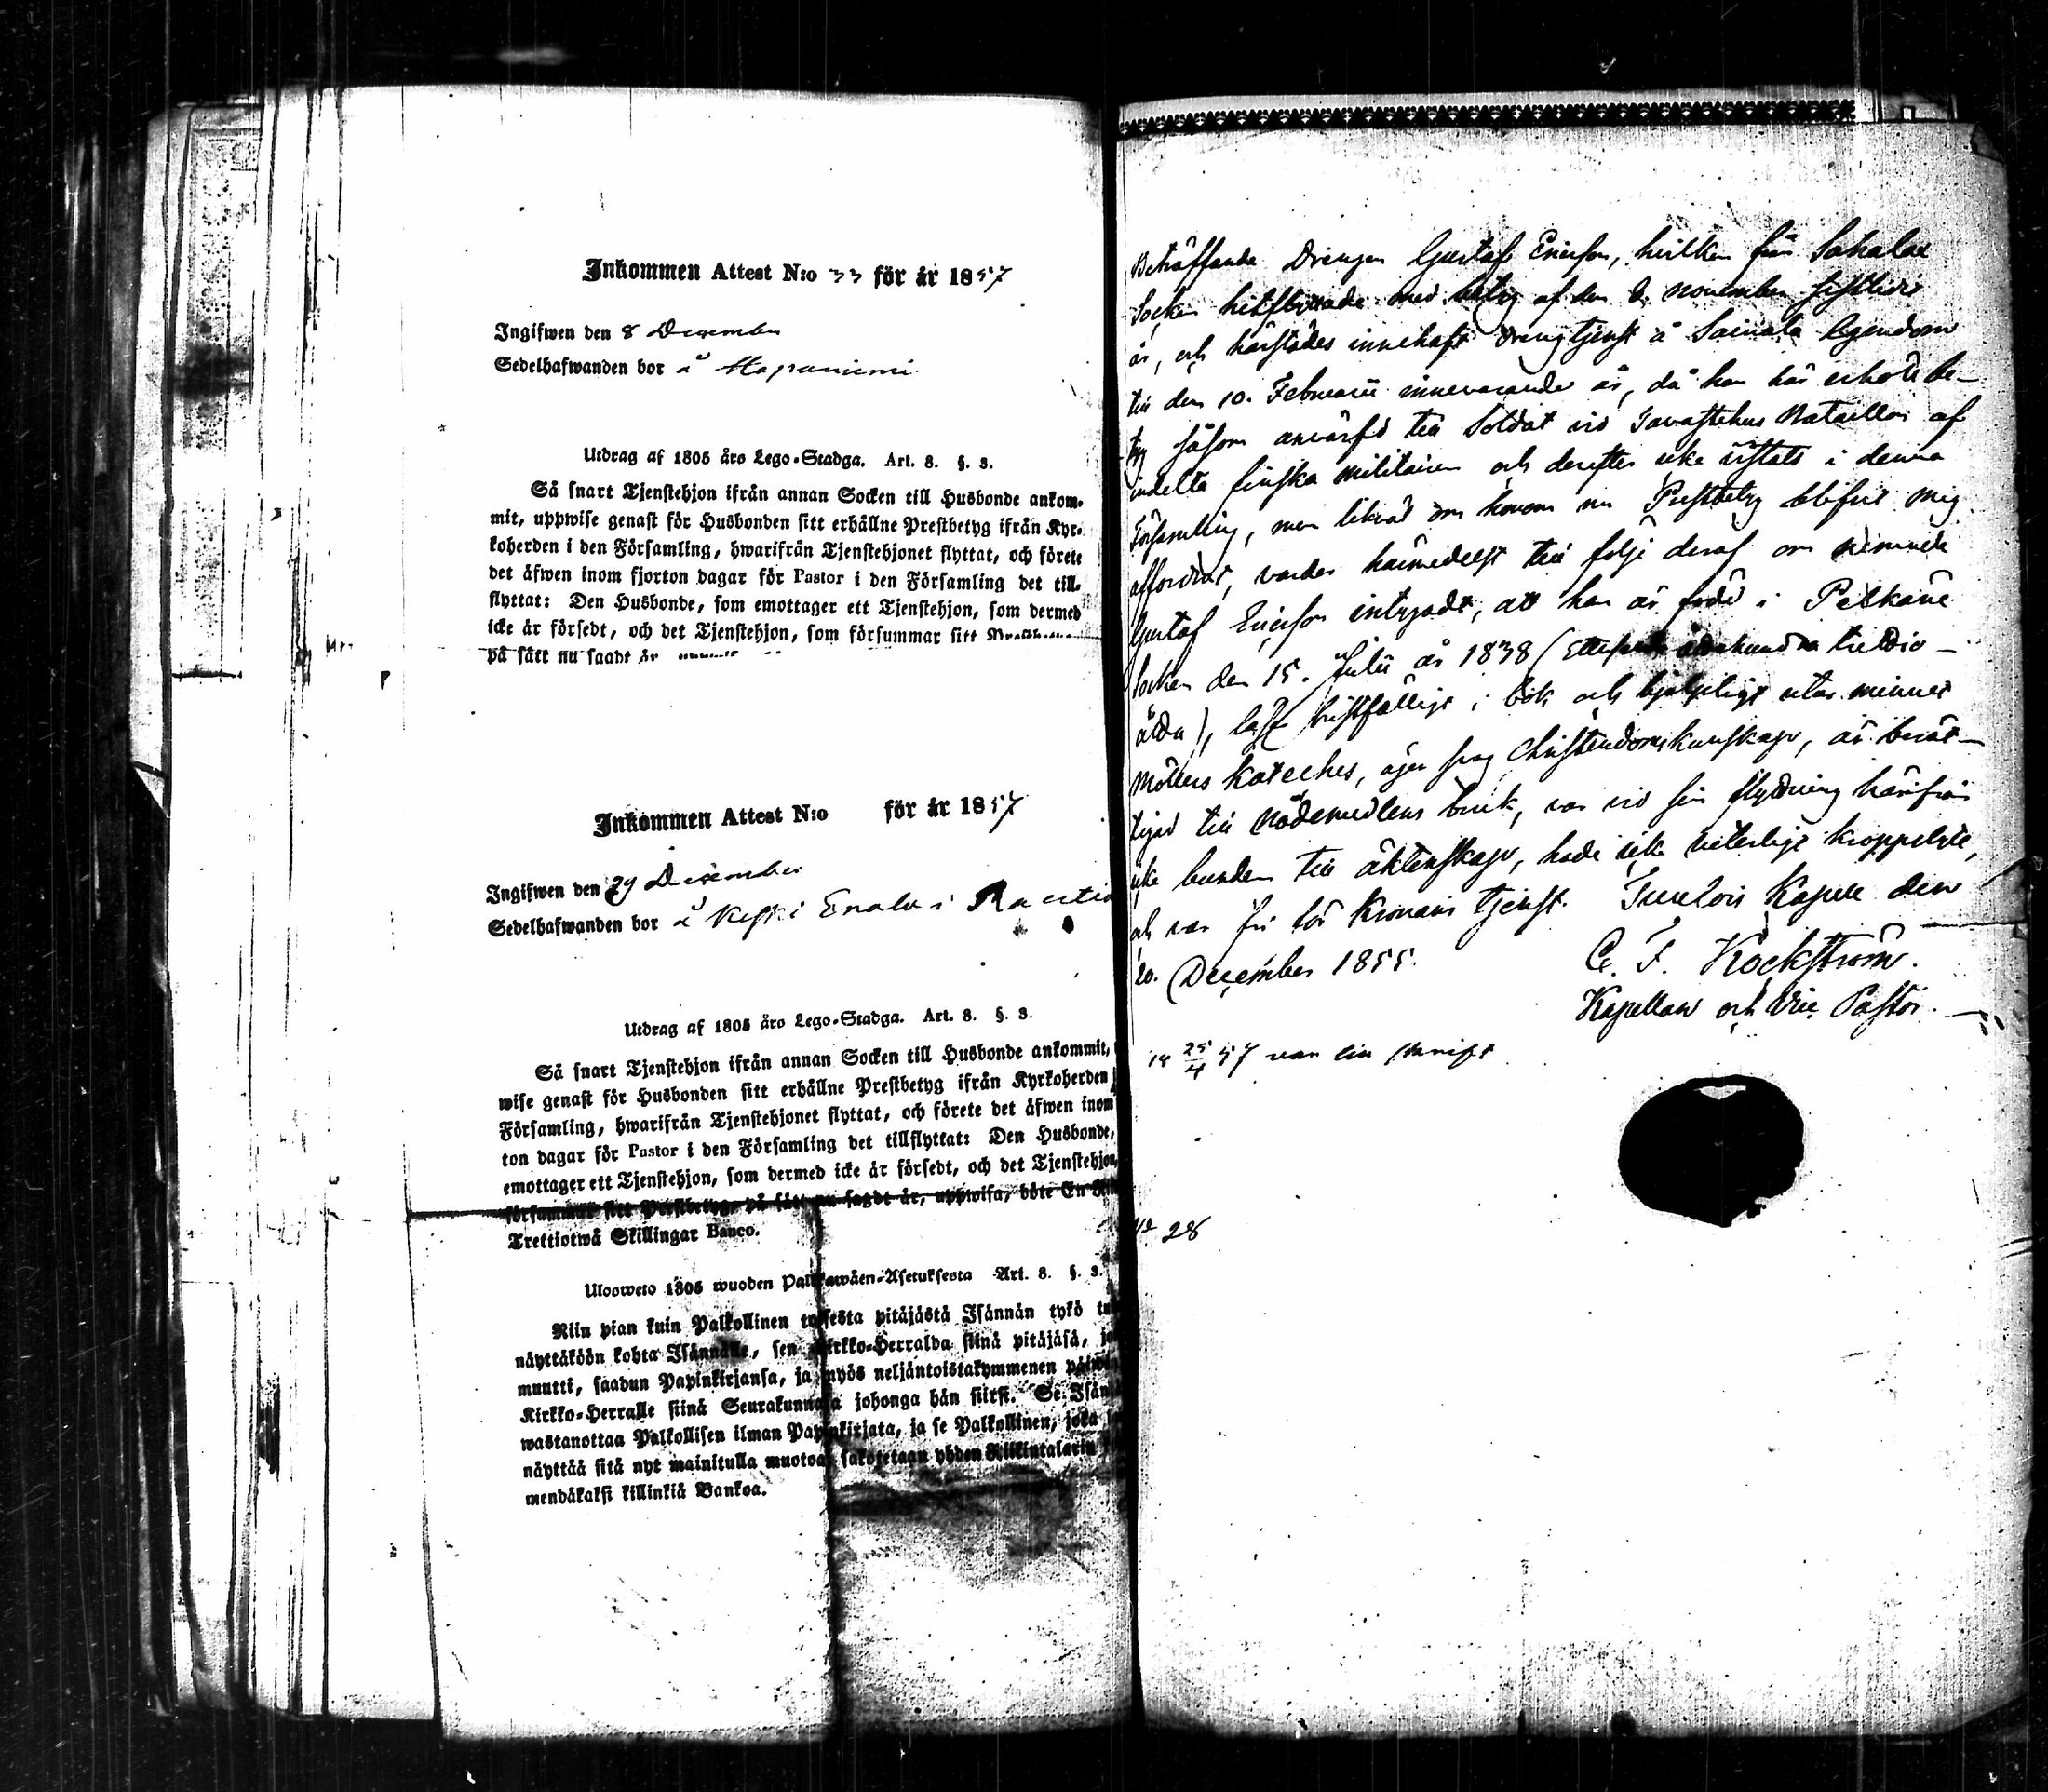 Inkommen Attest N:o 33 för år 1857
Ingifwen den 8 December
Sedelhafwanden bor å Haponiemi
Utdrag af 1805 års Lego-Stadga. Art. 8. §. 3.
Så snart Tjenstehjon ifrån annan Socken till Husbonde ankom-
mit, uppwise genast för Husbonden sitt erhållne Prestbetyg ifrån Kyr-
koherden i den Församling, hwarifrån Tjenstehjonet flyttat, och förete
det äfwen inom fjorton dagar för Pastor i den Församling det till-
flyttat: Den Husbonde, som emottager ett Tjenstehjon, som dermed
icke är försedt, och det Tjenstehjon, som försummar sitt
på sätt nu sagdt är
Inkommen Attest N:o för år 1857
Ingifwen den 29 December
Sedelhafwanden bor å Keski Enala i
Utdrag af 1805 års Lego-Stadga. Art. 8. §. 3.
Så snart Tjenstehjon ifrån annan Socken till Husbonde ankommit,
wise genast för Husbonden sitt erhållne Prestbetyg ifrån Kyrkoherden
Församling, hwarifrån Tjenstehjonet flyttat, och förete det äfwen inom
ton dagar för Pastor i den Församling det tillflyttat: Den Husbonde,
emottager ett Tjenstehjon, som dermed icke är försedt, och det Tjenstehjon,
försummar sitt Prestbetyg, på sätt nu sagdt är, uppwisa, böte En
Trettiotwå Skillingar Banco.
Ulosweto 1805 wuoden Palkkawäen-Asetuksesta Art. 8. §. 3.
Niin pian kuin Palkollinen toisesta pitäjästä Isännän tykö
näyttäköön kohta Isännälle, sen Kirkko-Herralda siinä pitäjäsä,
muutti, saadun Papinkirjansa, ja myös neljäntoistakymmenen päiwän
Kirkko-Herralle siinä Seurakunnasa johonga hän siirsi. Se Isän
wastanottaa Palkollisen ilman Papinkirjata, ja se Palkollinen, joka
näyttää sitä nyt mainitulla muotoa, sakotetaan yhden Riikintalarin
mendäkaksi killinkiä Bankoa.
Beträffande Drengen Gustaf Ericsson, hvilken från Sahalax
Socken hitflyttade med betyg af den 6 November sistlidit
år, och härstädes innehaft drengtjenst å Egendom
till den 10. Februarii innevarande år, då han här erhöll be-
tyg såsom anvärfd till Soldat vid Tavastehus Bataillon af
indelta finska militairen och derefter icke vistats i denna
Församling, men likväl om honom nu Prestbetyg blifvit mig
affordrat, varder härmedelst till följe deraf om nämnde
Gustaf Ericsson intygadt, att han är född i Pelkäne
Socken den 15. Julii år 1838 (Ettusende åttahundra trettio-
åtta), läser bristfälligt i bok och hjelpligt utur minnet
Möllers Kateches, äger svag Christendomskunskap, är berät-
tigad till Nådemedlens bruk, var vid sin flyttning härifrån
icke bunden till äktenskap, hade icke veterligt kroppslyte,
och var fri för Kronans tjenst. Kapell den
20. December 1855.
C. F. Rockström.
Kapellan och Vice Pastor.
18 25/4 57 var vid skrift
No 28